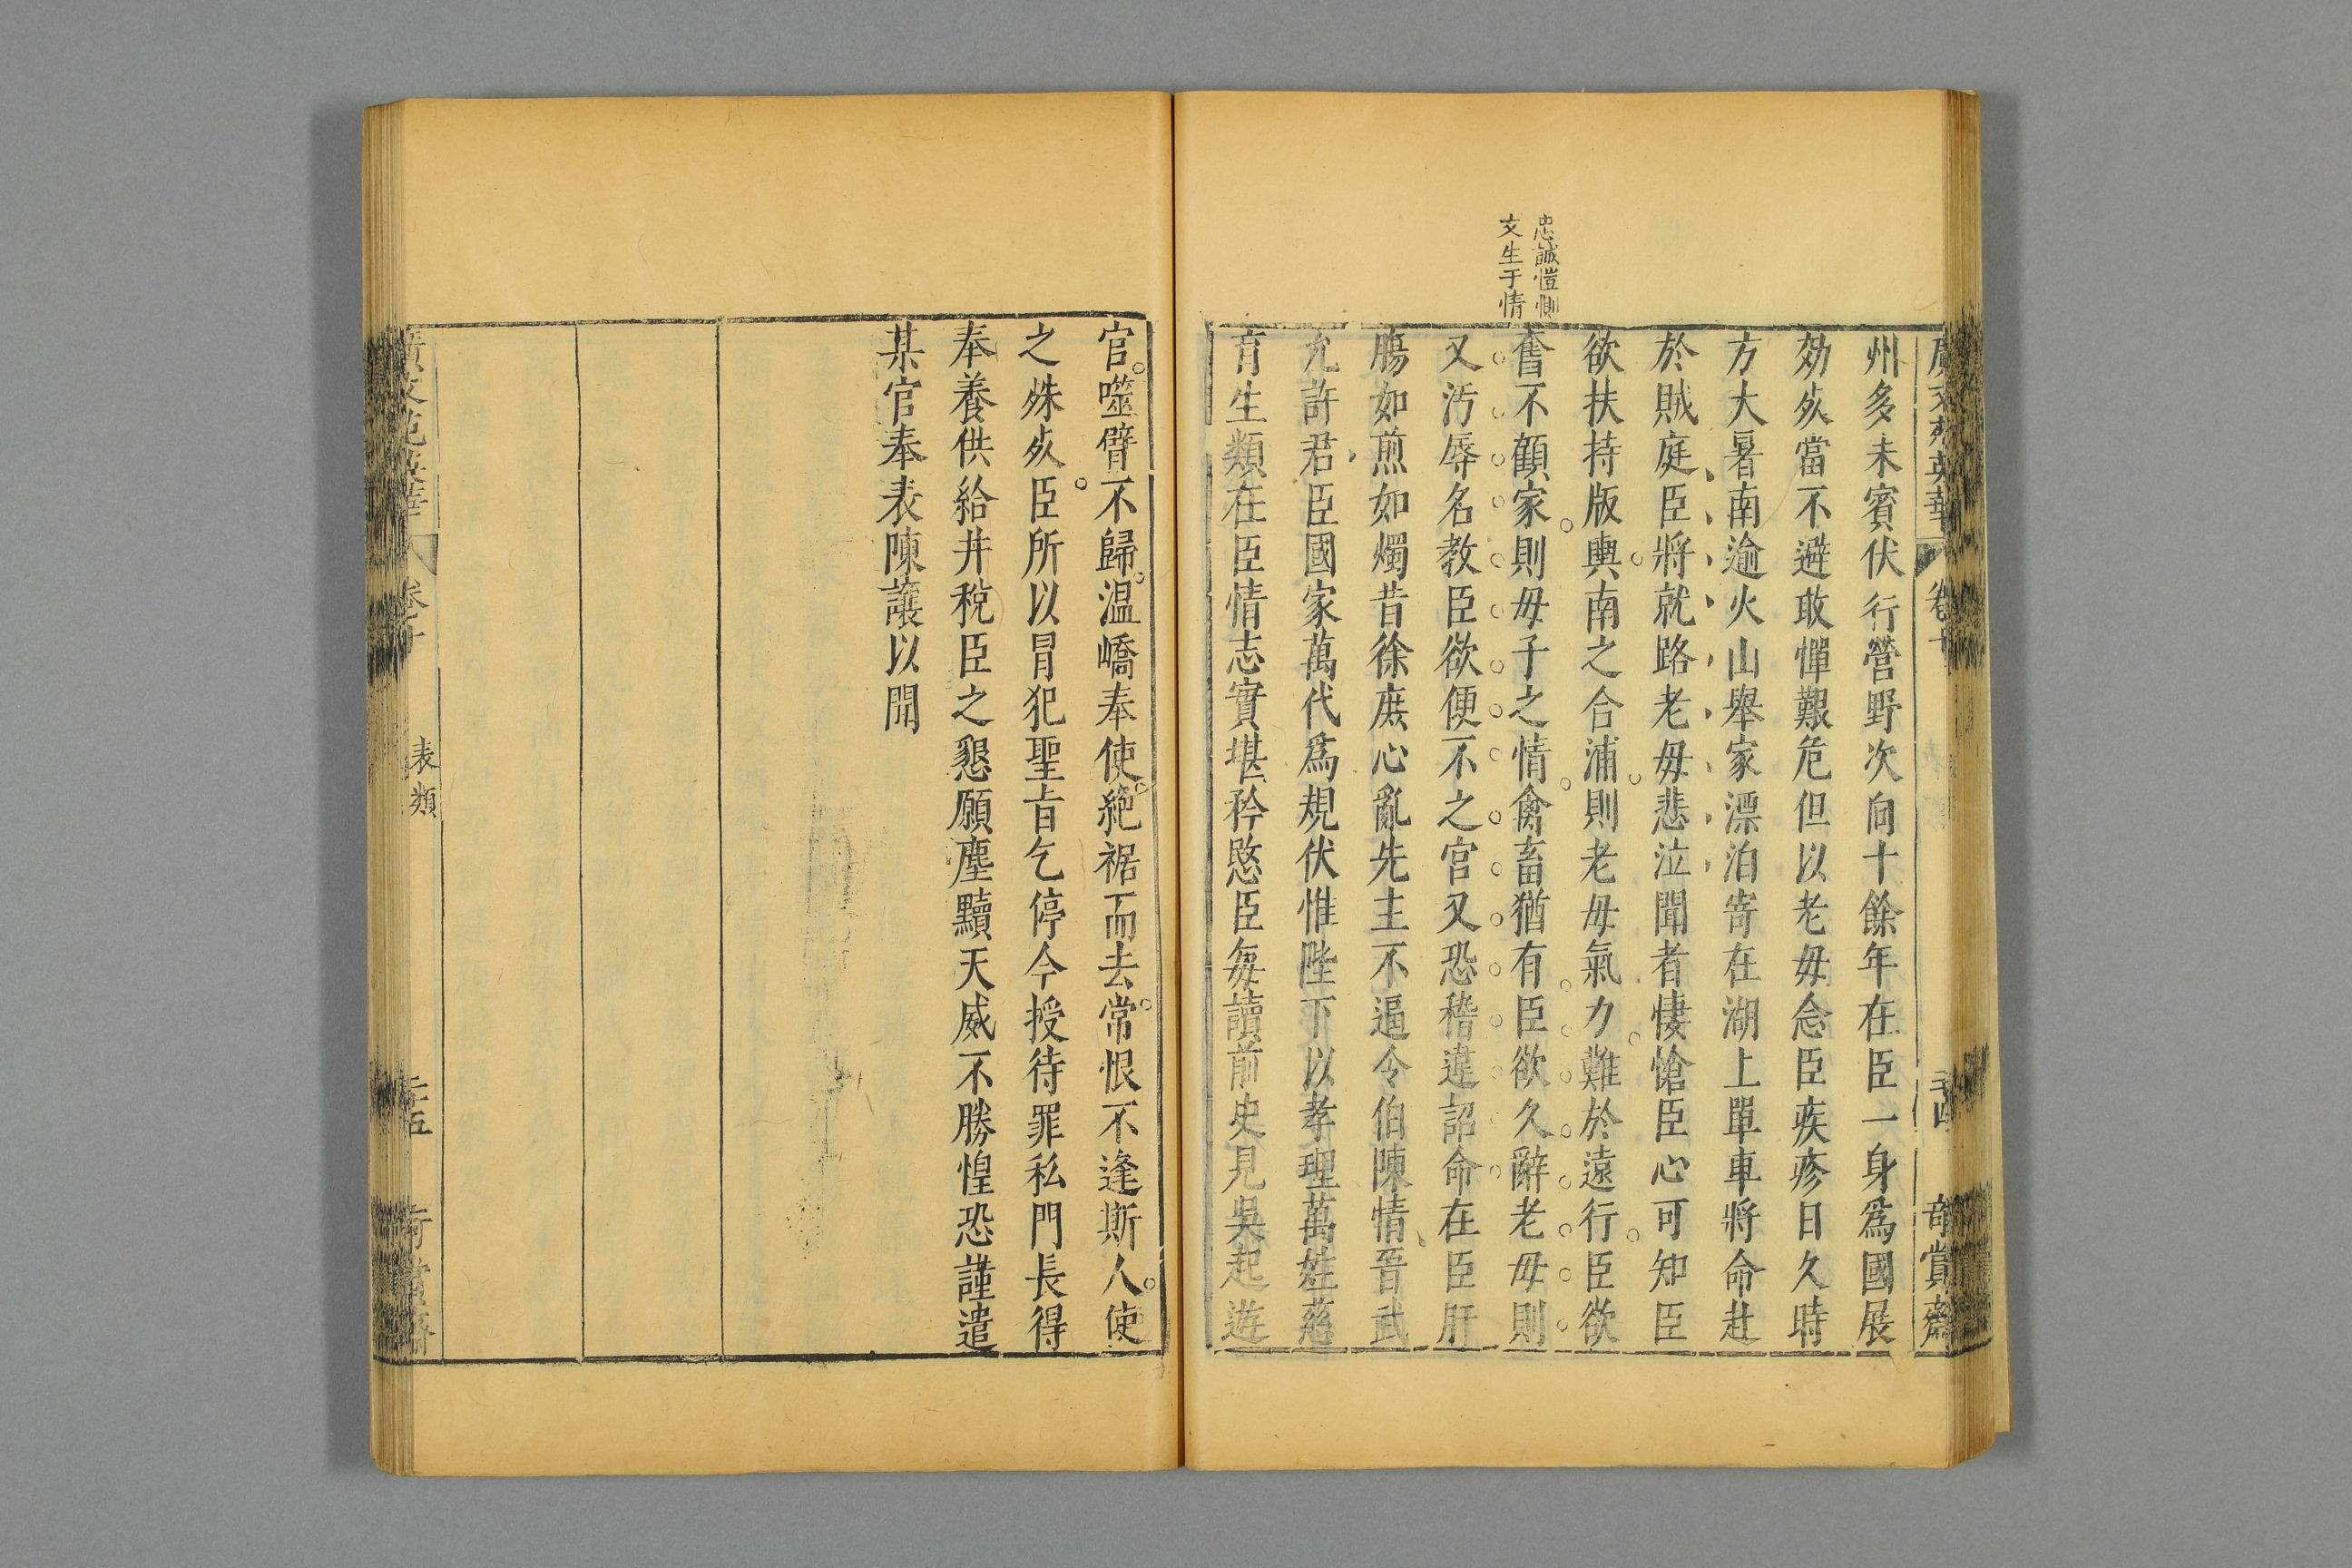 廣文苑英華 卷十 三十四 奇賞齋
忠誠愷惻
文生于情
州多未賓伏行營野次向十餘年在臣一身爲國展
効死當不避敢憚艱危但以老毋念臣疾疹日久時
方大暑南逾火山舉家漂泊寄在湖上單車將命赴
於賊庭臣將就路老毋悲泣聞者悽愴臣心可知臣
欲扶持版輿南之合浦則老毋氣力難於遠行臣欲
奮不顧家則毋子之情禽畜猶有臣欲久辭老毋則
又汚辱名教臣欲便不之官又恐稽違詔命在臣肝
膓如煎如燭昔徐庶心亂先主不逼令伯陳情晉武
允許君臣國家萬代爲規伏惟陛下以孝理萬姓慈
育生類在臣情志實堪矜愍臣每讀前史見吳起遊
官噬臂不歸温嶠奉使絶裾而去常恨不逢斯人使
之殊死臣所以冒犯聖旨乞停今授待罪私門長得
奉養供給井稅臣之懇願塵黷天威不勝惶恐謹遣
某官奉表陳讓以聞
廣文苑英華 卷十 表類 三十五 奇賞齋